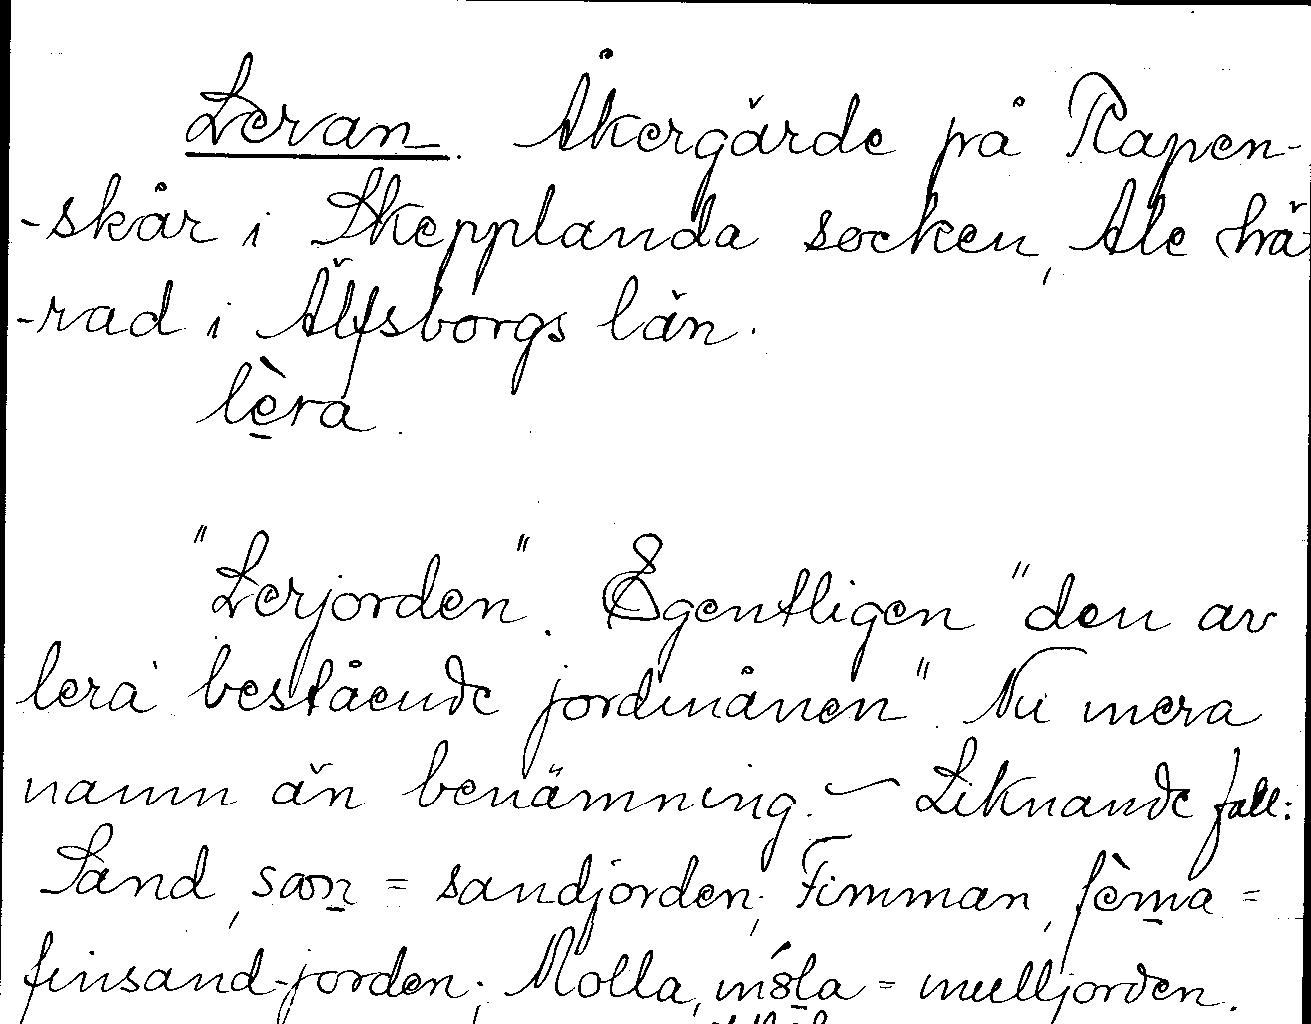 Leran. Åkergärde på Rapen-
-skår i Skepplanda socken, Ale hä-
-rad i Älfsborgs län.
lèra.
"Lerjorden". Egentligen "den av
lera bestående jordmånen". Nu mera
namn än benämning. – Liknande fall:
Sand, san = sandjorden; Fimman, fèma =
finsand-jorden; Molla, móla = mulljorden.